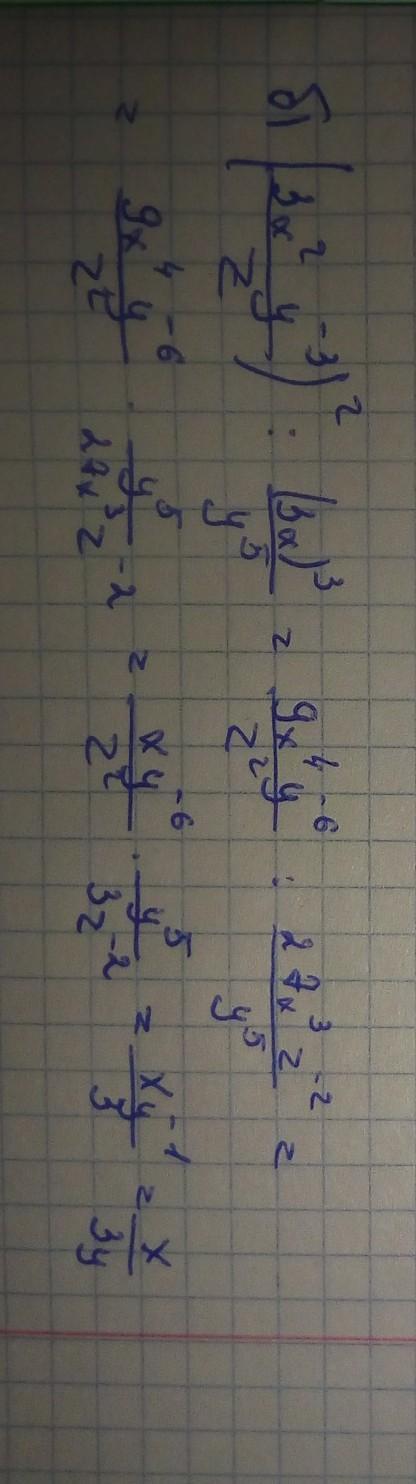 б) (3x²y⁻³/z)² : (3x)³/y⁵ = 9x⁴y⁻⁶/z² : 27x³z⁻²/y⁵ =
= 9x⁴y⁻⁶/z² · y⁵/27x³z⁻² = xy⁻⁶/z² · y⁵/3z⁻² = xy⁻¹/3 = x/3y